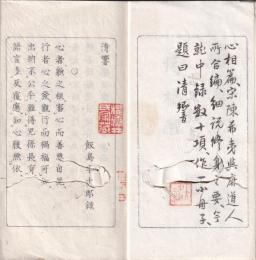 心相篇宋陳希夷與麻道人
所合編細説修身之要今
就中録數十項作一小冊子
題曰清響
清響
飯島
郎録
心者貌之根審心而善惡自見
行者心之發觀行而禍福可知
出納不公平難得兒孫長育
語言多反覆應知心腹無依